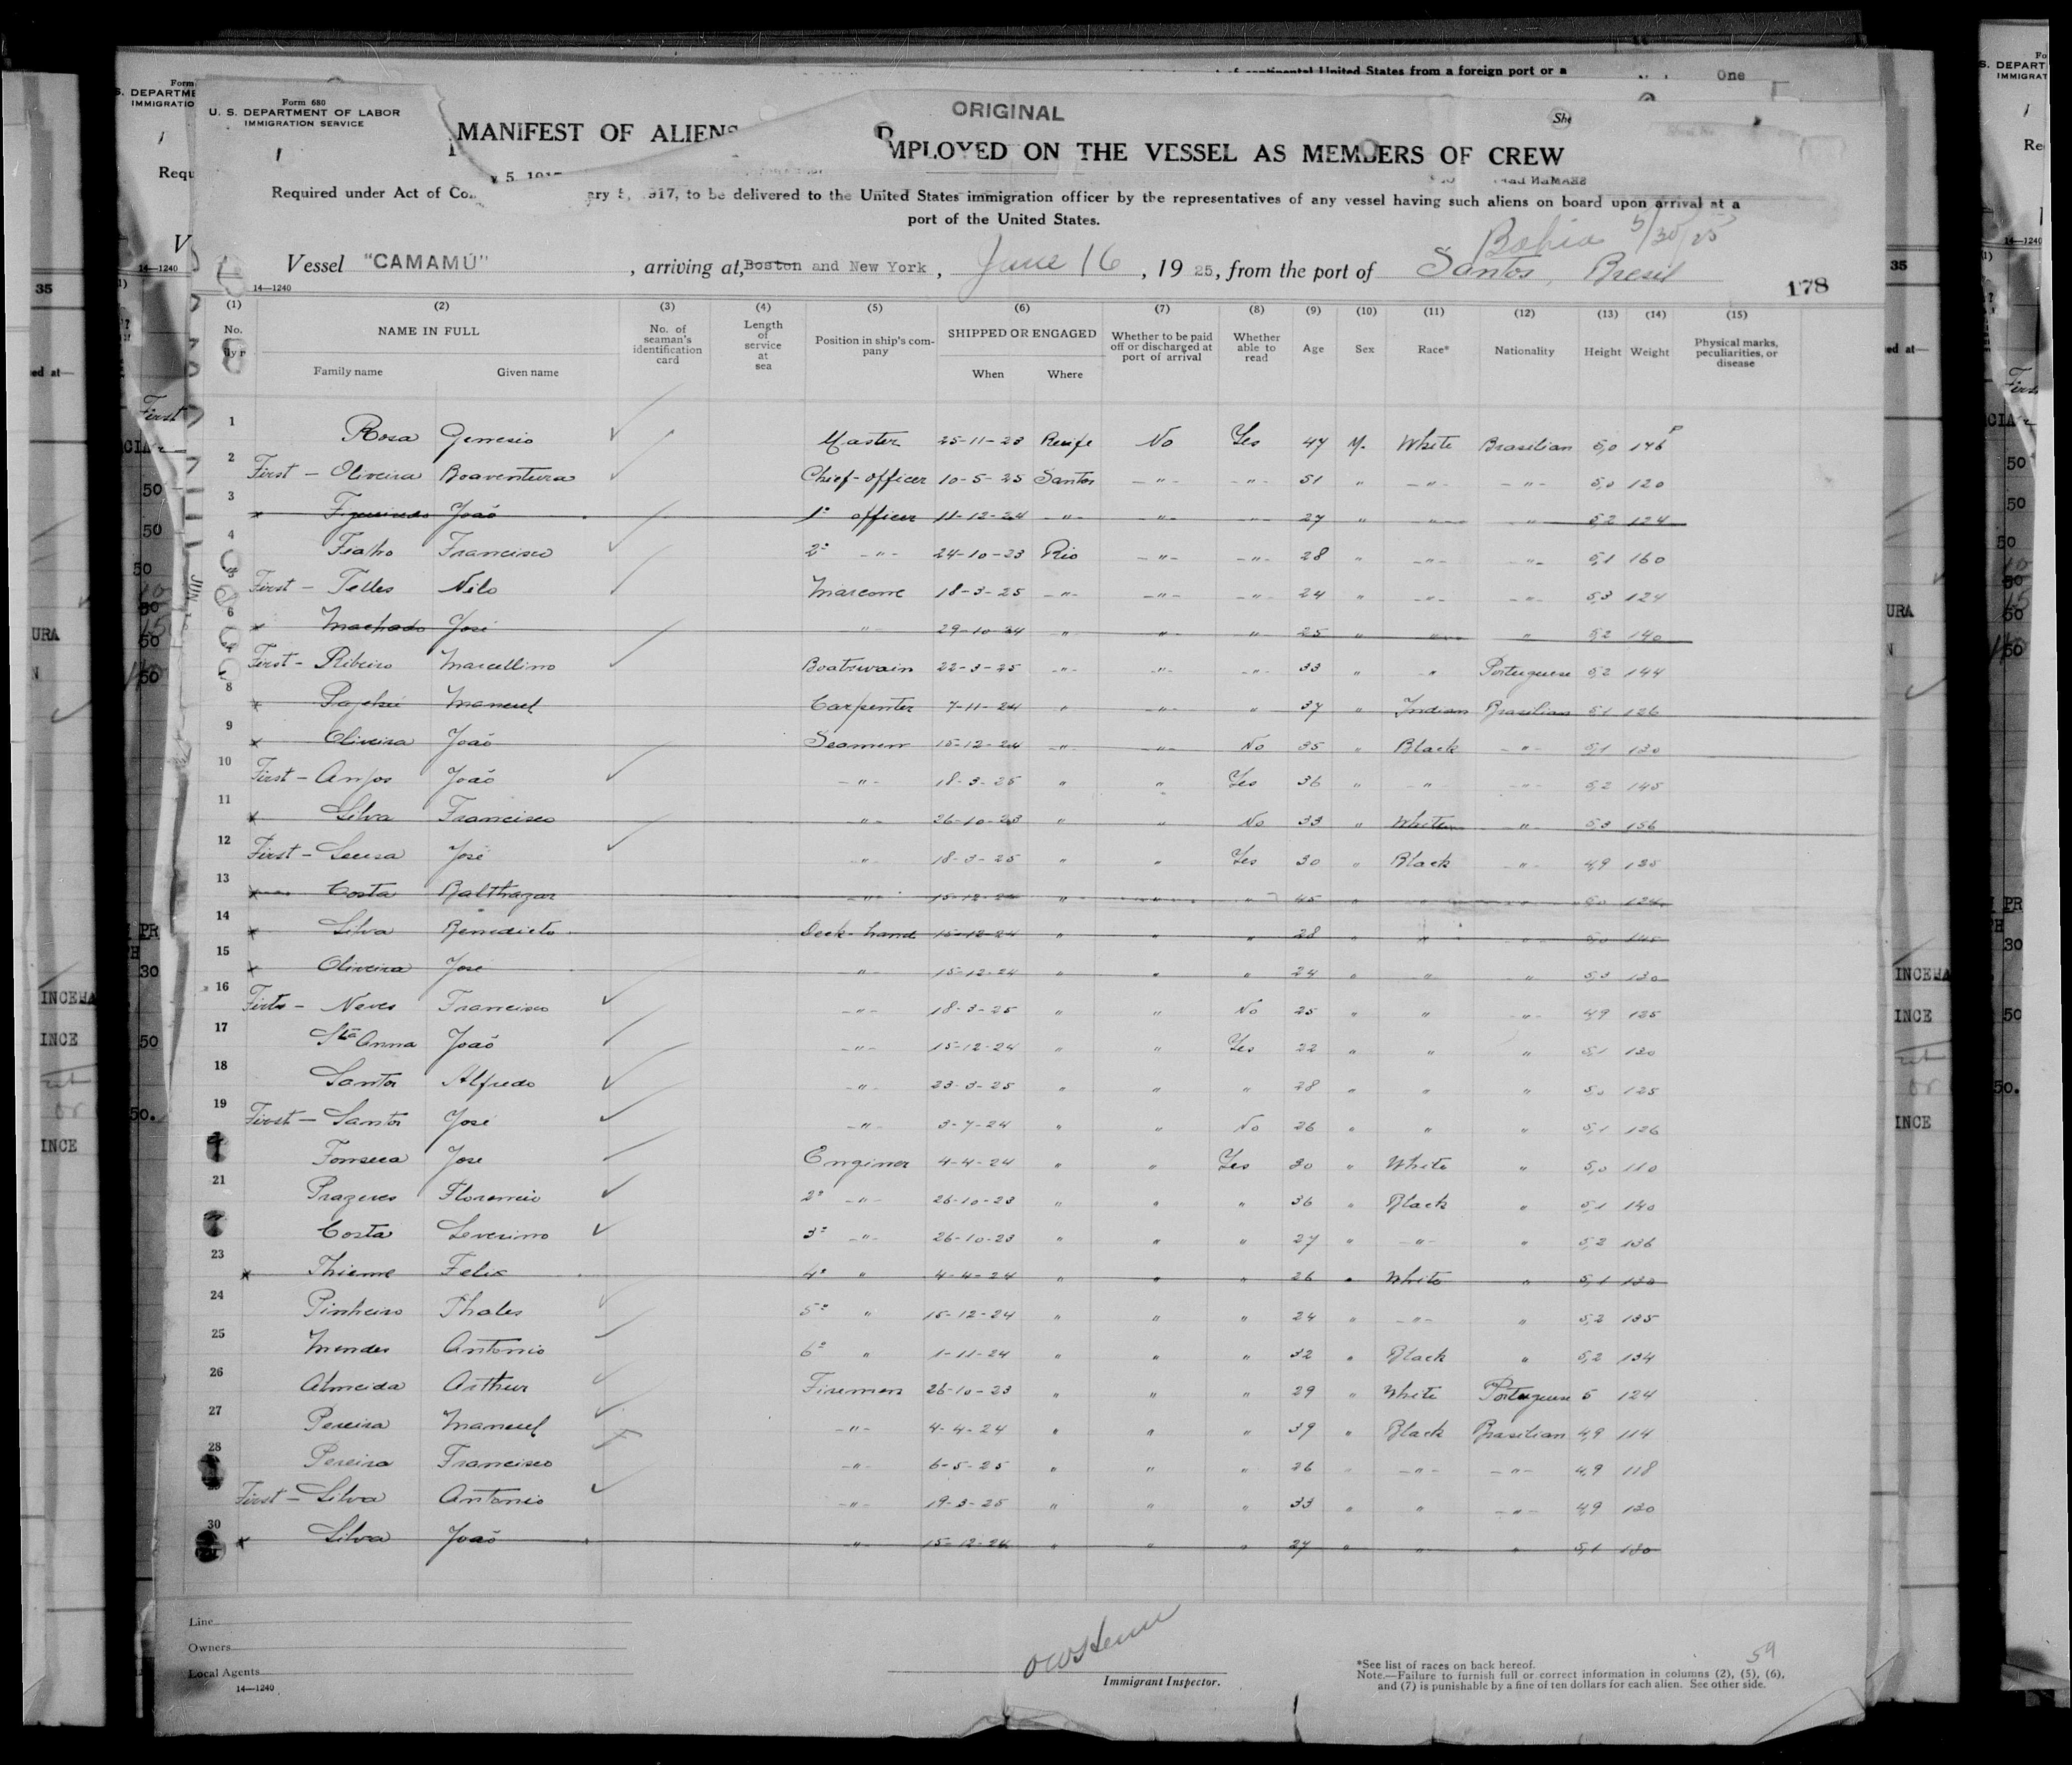 of continental United States from a foreign port or a
One
Form 680
U. S. DEPARTMENT OF LABOR
IMMIGRATION SERVICE
ORIGINAL
MANIFEST OF ALIENS EMPLOYED ON THE VESSEL AS MEMBERS OF CREW
Required under Act of Con ary 5, 1917, to be delivered to the United States immigration officer by the representatives of any vessel having such aliens on board upon arrival at a
port of the United States.
Bahia 5/30/25
Vessel "CAMAMÚ" , arriving at, Boston and New York , June 16 , 19 25, from the port of Santos, Bresil
14—1240
178
(1) (2) (3) (4) (5) (6) (7) (8) (9) (10) (11) (12) (13) (14) (15)
No. NAME IN FULL Family name Given name No. of seaman's identification card Length of service at sea Position in ship's company SHIPPED OR ENGAGED When Where Whether to be paid off or discharged at port of arrival Whether able to read Age Sex Race* Nationality Height Weight Physical marks, peculiarities, or disease
1 Rosa Genesio Master 25-11-23 Recife No Yes 47 M. White Brasilian 5,0 146
2 First - Oliveira Boaventura Chief-officer 10-5-25 Santos -"- -"- 51 " -"- -"- 5,0 120
3 x Figueiredo João 1º officer 11-12-24 -"- -"- -"- 27 " -"- " 5,2 124
4 Fialho Francisco 2º -"- 24-10-23 Rio -"- -"- 28 " -"- -"- 5,1 160
First - Telles Nilo Marconi 18-3-25 -"- -"- -"- 24 " -"- -"- 5,3 124
6 x Machado José " 29-10-24 " " " 25 " " " 5,2 140
First - Ribeiro Marcellino Boatswain 22-3-25 -"- -"- -"- 33 " " Portuguese 5,2 144
8 x Manuel Carpenter 7-11-24 " -"- " 37 " Indian Brasilian 5,1 126
9 x Oliveira João Seamen 15-12-24 -"- -"- No 35 " Black -"- 5,1 130
10 First - Anjos João -"- 18-3-25 " " Yes 36 " -"- -"- 5,2 145
11 x Silva Francisco -"- 26-10-23 " " No 33 " White -"- 5,3 156
12 First - Sousa José -"- 18-3-25 " " Yes 30 " Black -"- 4,9 135
13 x Costa Balthazar -"- 15-12-24 " -"- " 45 " " " 5,0 124
14 x Silva Benedicto Deck-hand 15-12-24 " " " 28 " " " 5,0 145
15 x Oliveira José " 15-12-24 " " " 24 " " " 5,3 130
16 Firts - Neves Francisco -"- 18-3-25 " " No 25 " " -"- 4,9 125
17 Sta Anna João -"- 15-12-24 " " Yes 22 " " " 5,1 130
18 Santos Alfredo -"- 23-3-25 " " " 28 " " " 5,0 125
19 First - Santos José -"- 3-7-24 " " No 26 " " " 5,1 126
Fonseca José Enginer 4-4-24 " " Yes 30 " White " 5,0 110
21 Prazeres Florencio 2º -"- 26-10-23 " " " 36 " Black " 5,1 140
Costa Severino 3º -"- 26-10-23 " " " 27 " -"- " 5,2 136
23 x Thieme Felix 4º " 4-4-24 " " " 26 " White " 5,1 130
24 Pinheiro Thales 5º " 15-12-24 " " " 24 " -"- " 5,2 135
25 Mendes Antonio 6º " 1-11-24 " " " 32 " Black " 5,2 134
26 Almeida Arthur Firemen 26-10-23 " " " 29 " White Portuguese 5 124
27 Pereira Manuel -"- 4-4-24 " " " 39 " Black Brasilian 4,9 114
28 Pereira Francisco -"- 6-5-25 " " " 26 " -"- -"- 4,9 118
First - Silva Antonio -"- 19-3-25 " " " 33 " " -"- 4,9 130
30 x Silva João " 15-12-24 " " " 27 " " " 5,1 130
Line
Owners
Local Agents
14—1240
Immigrant Inspector.
59
*See list of races on back hereof.
Note.—Failure to furnish full or correct information in columns (2), (5), (6),
and (7) is punishable by a fine of ten dollars for each alien. See other side.